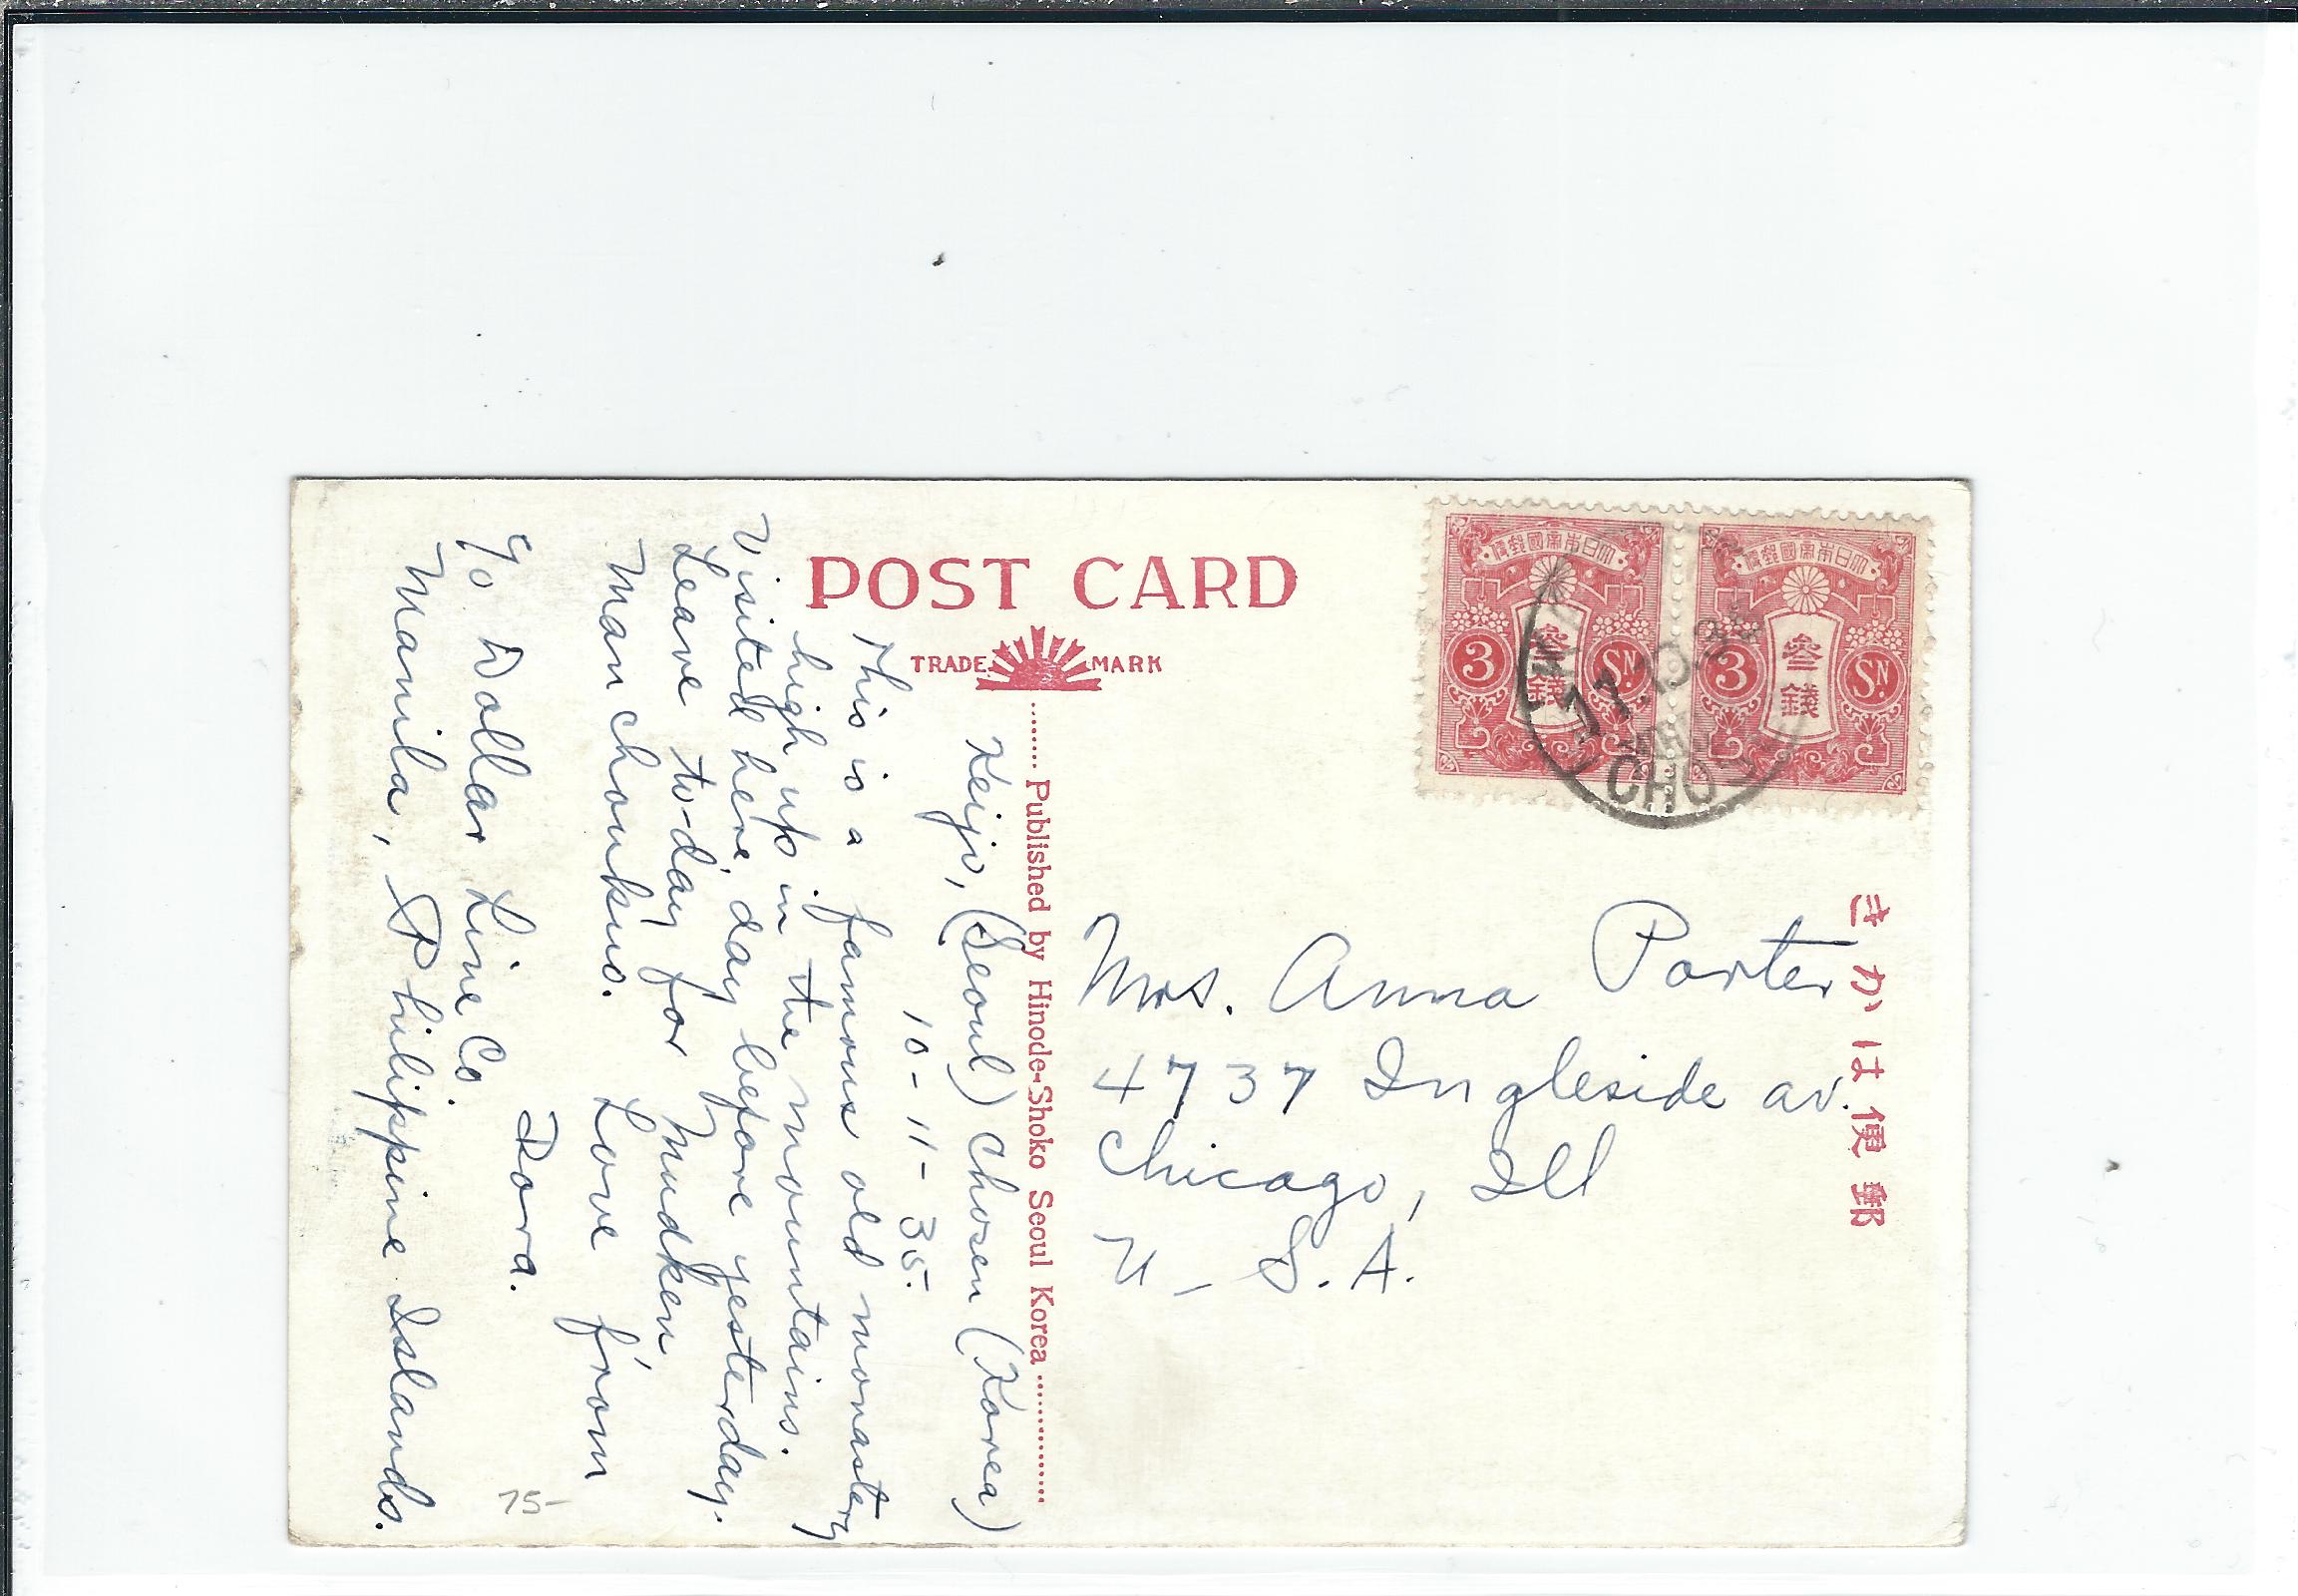 POST CARD
TRADE MARK
Published by Hinode-Shoko Seoul Korea
きかは便郵
大日本帝國郵便
3
SN.
参
銭
大日本帝國郵便
3
SN.
参
銭
CHO
Mrs. Anna Porter
4737 Ingleside av.
Chicago, Ill
U.S.A.
Keijo, (Seoul) Chosen (Korea)
10-11-35.
This is a famous old monastery
high up in the mountains.
Visited here, day before yesterday.
Leave to-day for Mudken,
Manchoukuo. Love from
Dora.
% Dollar Line Co.
Manila, Philippine Islands.
75-